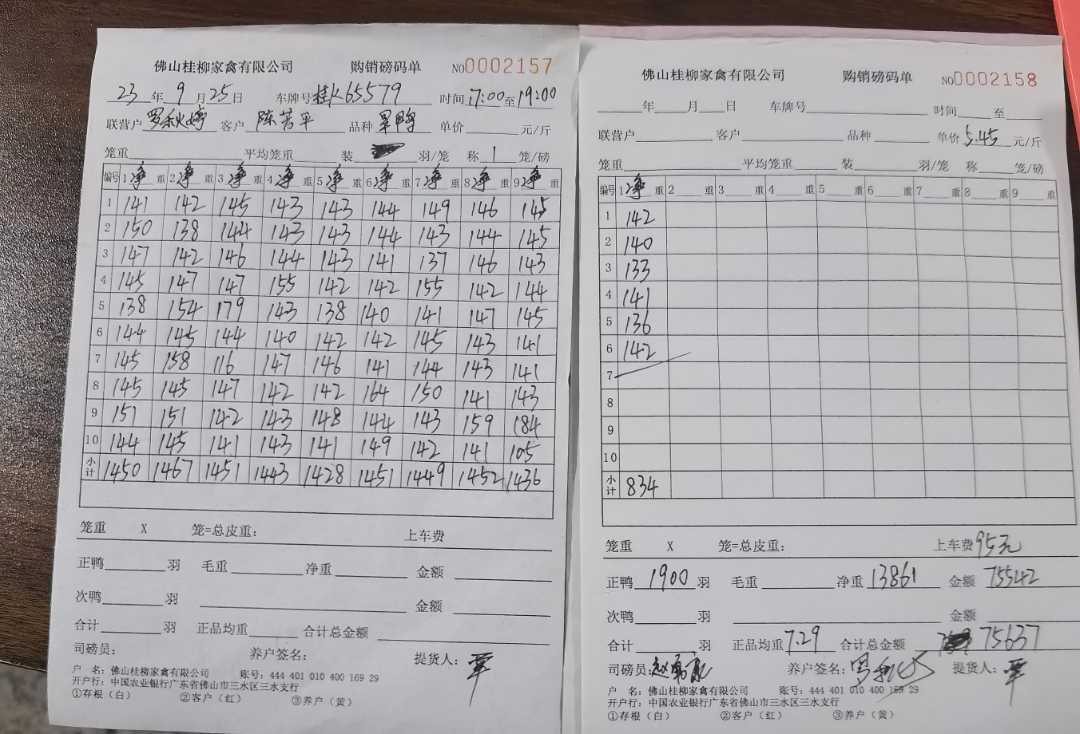 佛山桂柳家禽有限公司 购销磅码单 NO0002157
23年9月25日 车牌号桂K65579 时间17:00至19:00
联营户 客户 陈 平 品种 旱鸭 单价 元/斤
笼重 平均笼重 装 羽/笼 称 1 笼/磅
编号 1净重 2净重 3净重 4净重 5净重 6净重 7净重 8净重 9净重
1 141 142 145 143 143 144 149 146 145
2 150 138 144 143 143 144 143 144 145
3 147 142 146 144 143 141 137 146 143
4 145 147 147 155 142 142 155 142 144
5 138 154 179 143 138 140 141 147 145
6 144 145 144 140 142 142 145 143 141
7 145 158 116 147 146 141 144 143 141
8 145 145 147 142 142 164 150 141 143
9 151 151 142 143 148 144 143 159 184
10 144 145 141 143 141 149 142 141 105
小计 1450 1467 1451 1443 1428 1451 1449 1452 1436
笼重 X 笼=总皮重: 上车费
正鸭 羽 毛重 净重 金额
次鸭 羽 金额
合计 羽 正品均重 合计总金额
司磅员: 养户签名: 提货人:
户 名: 佛山桂柳家禽有限公司 账号: 444 401 010 400 169 29
开户行: 中国农业银行广东省佛山市三水区三水支行
①存根(白) ②客户(红) ③养户(黄)
佛山桂柳家禽有限公司 购销磅码单 NO0002158
年 月 日 车牌号 时间 至
联营户 客户 品种 单价 5.45 元/斤
笼重 平均笼重 装 羽/笼 称 笼/磅
编号 1净重 2 重 3 重 4 重 5 重 6 重 7 重 8 重 9 重
1 142
2 140
3 133
4 141
5 136
6 142
7
8
9
10
小计 834
笼重 X 笼=总皮重: 上车费 95元
正鸭 1900 羽 毛重 净重 13861 金额 75542
次鸭 羽 金额
合计 羽 正品均重 7.29 合计总金额 75637
司磅员: 养户签名: 提货人:
户 名: 佛山桂柳家禽有限公司 账号: 444 401 010 400 169 29
开户行: 中国农业银行广东省佛山市三水区三水支行
①存根(白) ②客户(红) ③养户(黄)